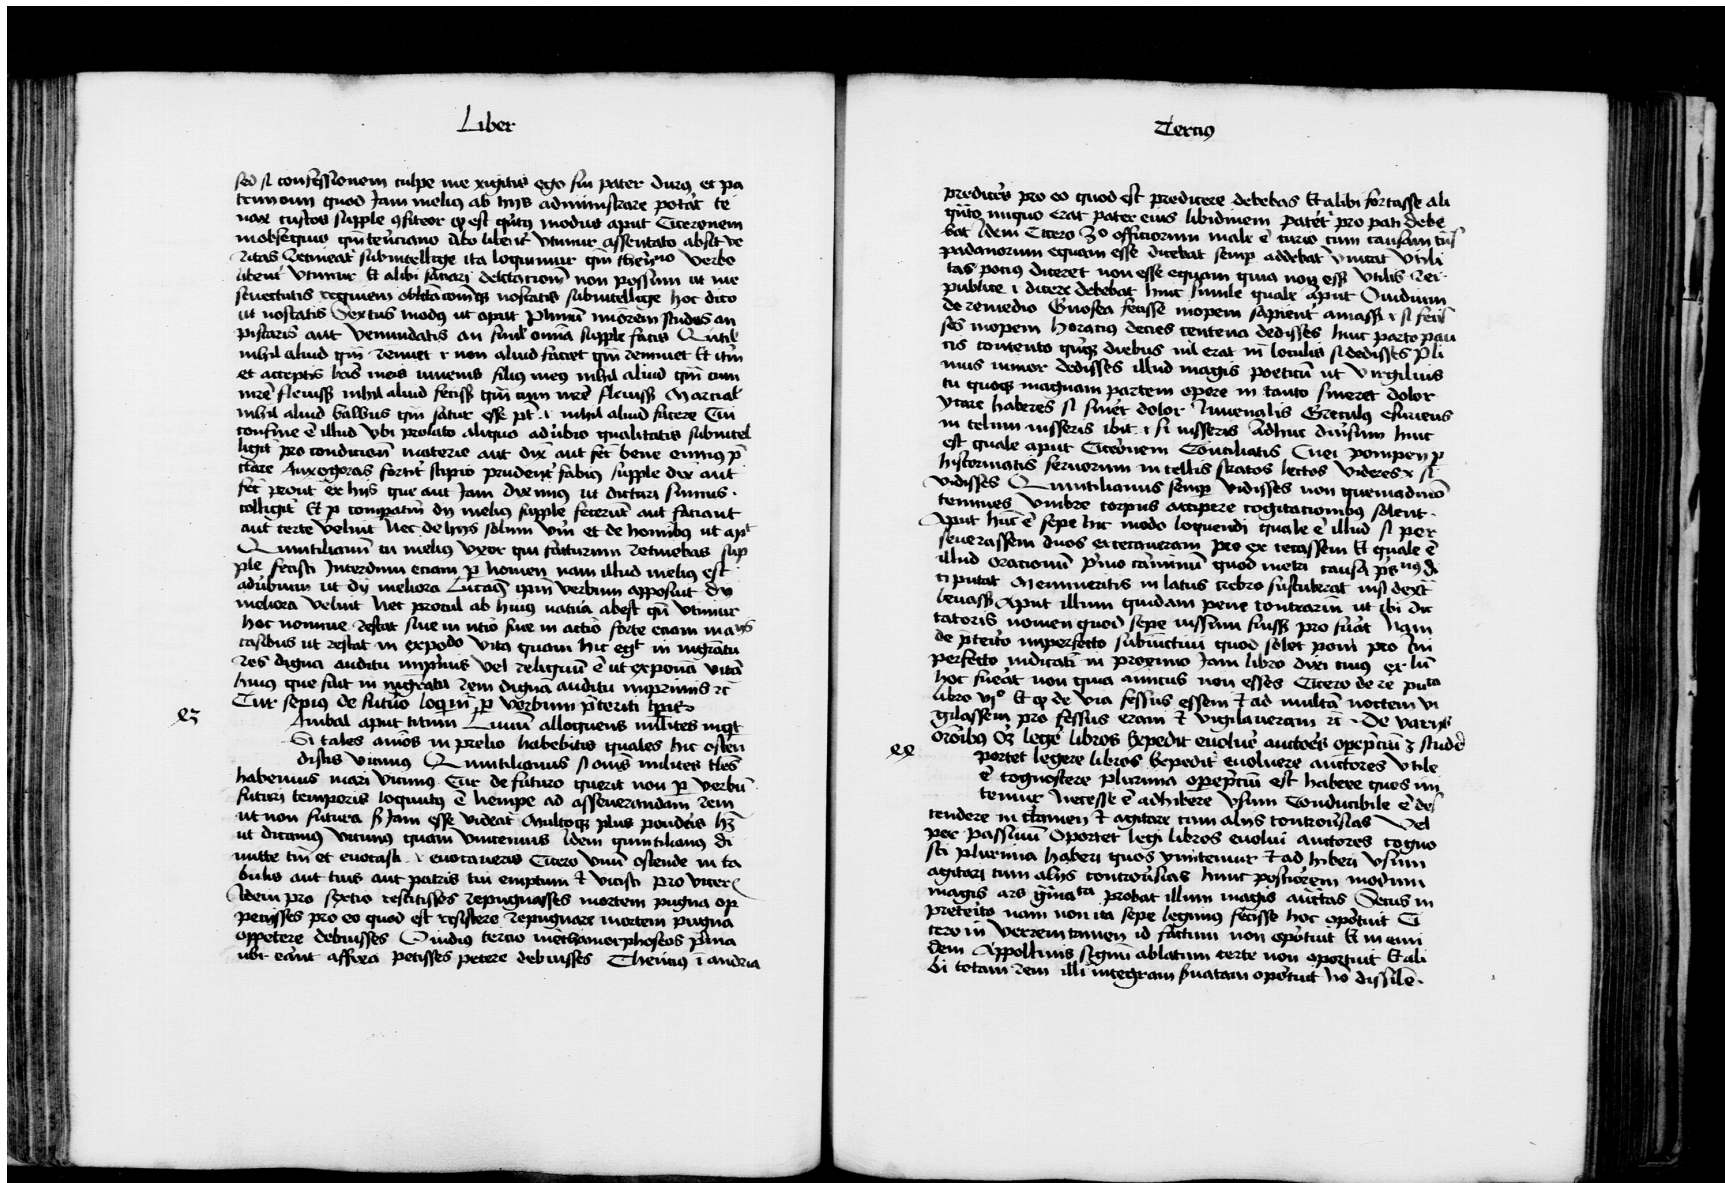 Liber
sed si confessionem culpe me exigitis ego fui pater durus et pa
trimonium quod Jam melius ab hijs administrare potat te
nax custos supple ꝯfiteor qꝫ est qtus modus aput Ciceronem
in obsequio qm terenciano vbo libent vtimur assentatio absit ve
ritas retineat subintellige ita loquimur
libent vtimur Et alibi saciari delectacione non possum ut me
senectutis requiem oblectacionemqꝫ noscatis subintellige hoc dico
ut noscatis Sextus modus ut aput Plinium Juniorem studes an
piscaris aut venundatis an simul omnia supple facis Quitil
nihil aliud qm renuet i non aliud faciet qm renuet Et itm
et acceptis bais meis iuvenis filius meus nihil aliud qm cum
mre flevisset nihil aliud fecisset qm cum mre flevisset Marcial
nihil aliud balbus qm satur esse pt i nihil aliud facere Cui
confine e illud vbi prolato aliquo adverbio qualitatis subintel
ligit pro condicione materie aut dix aut fec bene ennius p
clare Anxagoras fortit scipio prudent fabius supple dix aut
fec prout ex hijs que aut Jam diximus ut dicturi sumus
colligit Et p compatim dij melius supple fecerut aut faciant
aut certe velint Nec de hijs solum vm et de hominibus ut apt
Quintilianum tu melius vxor que facturum retinebas sup
ple fecisti Interdum eciam p nomen nam illud melius est
adverbium ut dij meliora Lucanus ipm verbum apposuit Dij
meliora velint Nec procul ab huius natura abest qu vtimur
hoc nomine restat sive in ntio sive in actio forte eciam in alijs
casibus ut restat in expodo vita quam hic egt in migratu
res digna auditu imprimis vel reliquum e ut exponam vita
huius que fuit in migratu rem digna auditu imprimis rc
Cur sepius de futuro loquim p verbum preteriti tpis
Anibal aput titum Livium alloquens milites inqt
Si tales animos in prelio habebitis quales hic osten
distis vicimus Quintilianus si omnes milites tales
habemus mari vicimus Cur de futuro querit non p verbu
futuri temporis loquutus e Nempe ad asseverandam rem
ut non futura sꝫ Jam esse videat Multoqꝫ plus ponderis hꝫ
ut dicamus vicimus quam vincemus Idem quintilianus di
mitte tm et evocasti i evocaveris Cicero vnum ostende in ta
bulis aut tuis aut patris tui emptum et vicisti pro vicer
Idem pro sextio restitisses repugnasses mortem pugna op
petisses pro eo quod est resistere repugnare mortem pugna
oppetere debuisses Ovidius tercio methamorphoseos
ubi erant affixa petisses petere debuisses Therencius i andria
Tercius
predices pro eo quod est predicere debebas Et alibi fortasse ali
qnto iniquo erat pater eius libidinem patet pro pati debe
bat Idem Cicero 3o officiorum male e curio cum causam
padanorum equam esse dicebat semp addebat vincat vtili
tas pocius diceret non esse equam quia non esset vtilis rei
publice i dicere debebat huic simile quale aput Ouidium
de remedio Gnosea fecisset inopem sapient amasset i si fecis
ses inopem Horacius decies centena dedisses huic parco pau
cis contento qnqꝫ diebus nil erat in loculis si dedisses Pli
nius iunior dedisses illud magis poeticum ut virgilius
tu quoqꝫ magnam partem opere in tanto sineret dolor
ycare haberes si sineret dolor Juvenalis Greculus esuriens
in celum iusseris ibit i si iusseris Adhuc diversum huic
est quale aput Ciceronem Conciliatis Cnei pompeij p
histormatis servorum in cellis stratos lectos videres i si
vidisses Quintilianus semp vidisses non quemadmodum
tenues vmbre corpus accipere cogitacionibus solent
Aput hunc e sepe hic modo loquendi quale e illud si per
severassem duos excecaveram pro excecassem Et quale e
illud oracionum pmo carminum quod metri causa
ci putat Meminveritis in latus crebro sustulerat nisi dext
levasset Aput illum quidam pene contrarium ut tibi dic
tatoris nomen quod sepe iussum fuisset pro fuerat Nam
de preterito imperfecto subiunctivi quod solet poni pro Im
perfecto indicativi in proximo Jam libro dixi cuius ex lu
hoc fuerat non quia amicus non esses Cicero de re puca
libro vjo Et qꝫ de via fessus essem et ad multam noctem vi
gilassem pro fessus eram et vigilaveram rc De varijs
oronibus Oꝫ legere libros Expedit evolvere auctores operepcium ꝫ studere
portet legere libros Expedit evoluere auctores vtile
e cognoscere plurima operepcium est habere quos imi
temur Necesse e adhibere vsum Conducibile e des
cendere in certamen et agitare cum alijs controversias Vel
per passivum Oportet legi libros evolui auctores cogno
sci plurima haberi quos ymitemur et adhiberi vsum
agitari cum alijs controversias hunc posteriorem modum
magis ars gramatica probat illum magis auctoritas Secus in
preterito nam non ita sepe legimus fecisse hoc oportuit Ci
cero in verrem tamen id factum non oportuit Et in eun
dem Appollinis signum ablatum certe non oportuit Et ali
bi totam rem illi integram servatam oportuit no dissile